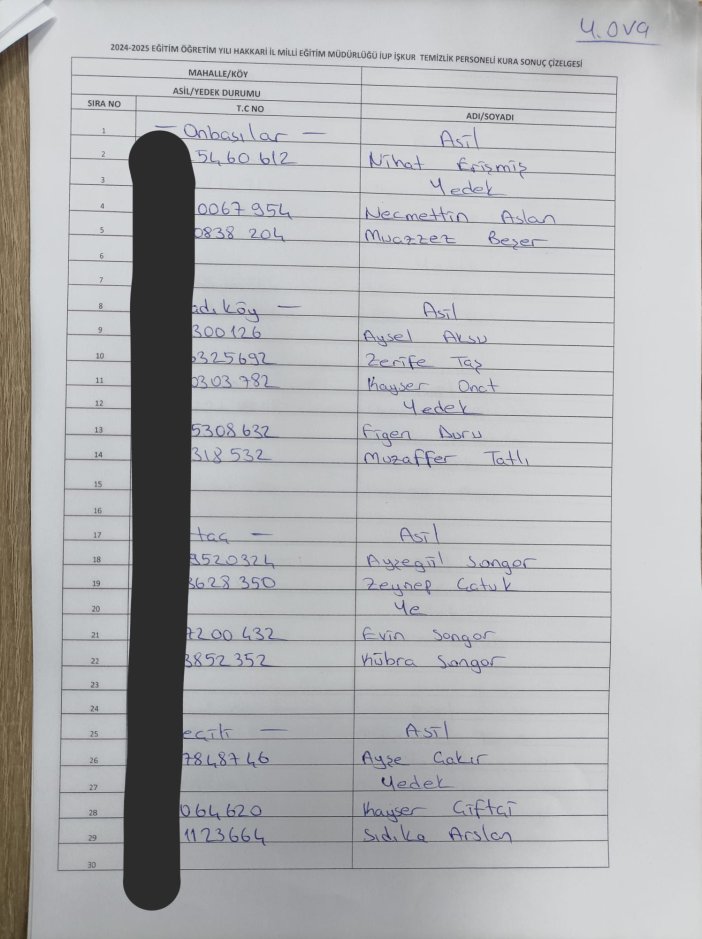 Y.OVA
2024-2025 EĞİTİM ÖĞRETİM YILI HAKKARİ İL MİLLİ EĞİTİM MÜDÜRLÜĞÜ İUP İŞKUR TEMİZLİK PERSONELİ KURA SONUÇ ÇİZELGESİ
MAHALLE/KÖY
ASİL/YEDEK DURUMU
SIRA NO T.C NO ADI/SOYADI
1 — Onbaşılar — Asil
2 5460612 Nihat Erişmiş
3 Yedek
4 0067954 Necmettin Aslan
5 0838 204 Muazzez Beşer
6
7
8 adıköy — Asil
9 300126 Aysel Aksu
10 325692 Zerife Taş
11 0303782 Kayser Onat
12 Yedek
13 5308632 Figen Duru
14 318532 Muzaffer Tatlı
15
16
17 taç — Asil
18 9520324 Ayşegül Songor
19 3628350 Zeynep Çatuk
20 Ye
21 7200432 Evin Songor
22 3852352 Kübra Songor
23
24
25 eçili — Asil
26 7848746 Ayşe Çakır
27 Yedek
28 064620 Kayser Çiftçi
29 1123664 Sıdıka Arslan
30